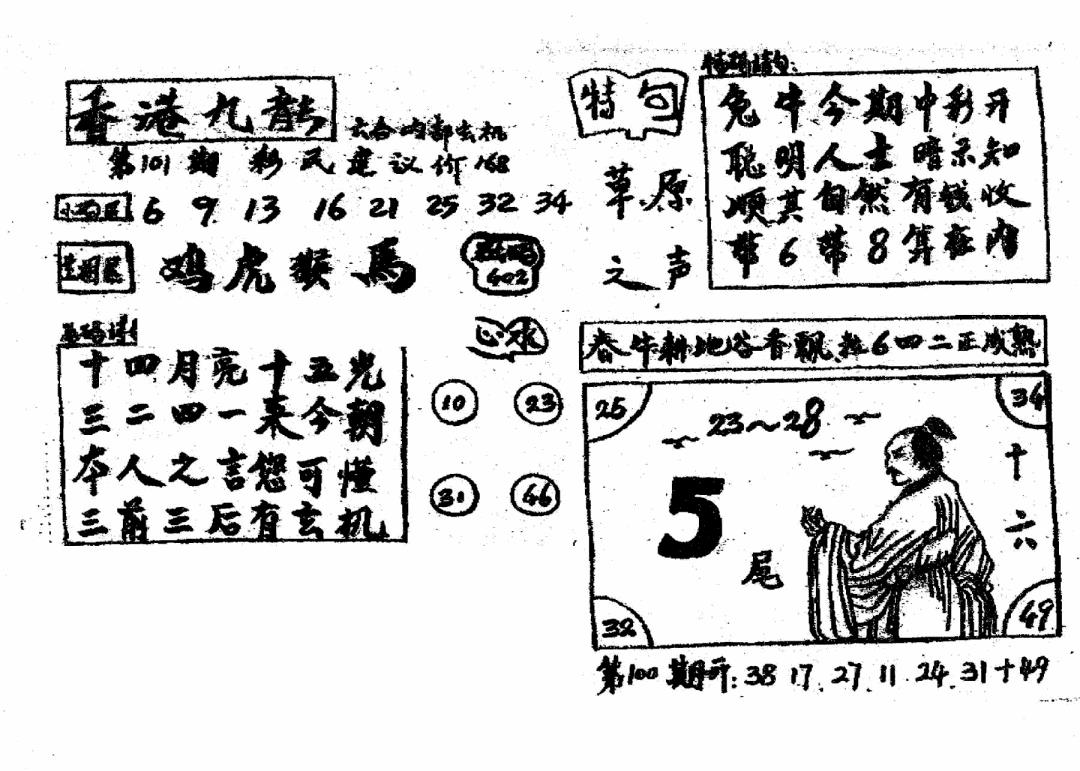 香港九龍
六合内部玄机
第101期 彩民建议价168
6 9 13 16 21 25 32 34
鸡虎猴馬
602
十四月亮十五光
三二四一来今朝
本人之言您可懂
三前三后有玄机
心水
10 23
31 46
特句
草原
之声
兔牛今期中彩开
聪明人士暗示知
顺其自然有钱收
带6带8算在内
春牛耕地谷香飘 6四二正成熟
25 34
23～28
5尾
十六
32 49
第100期开:38.17.27.11.24.31十49